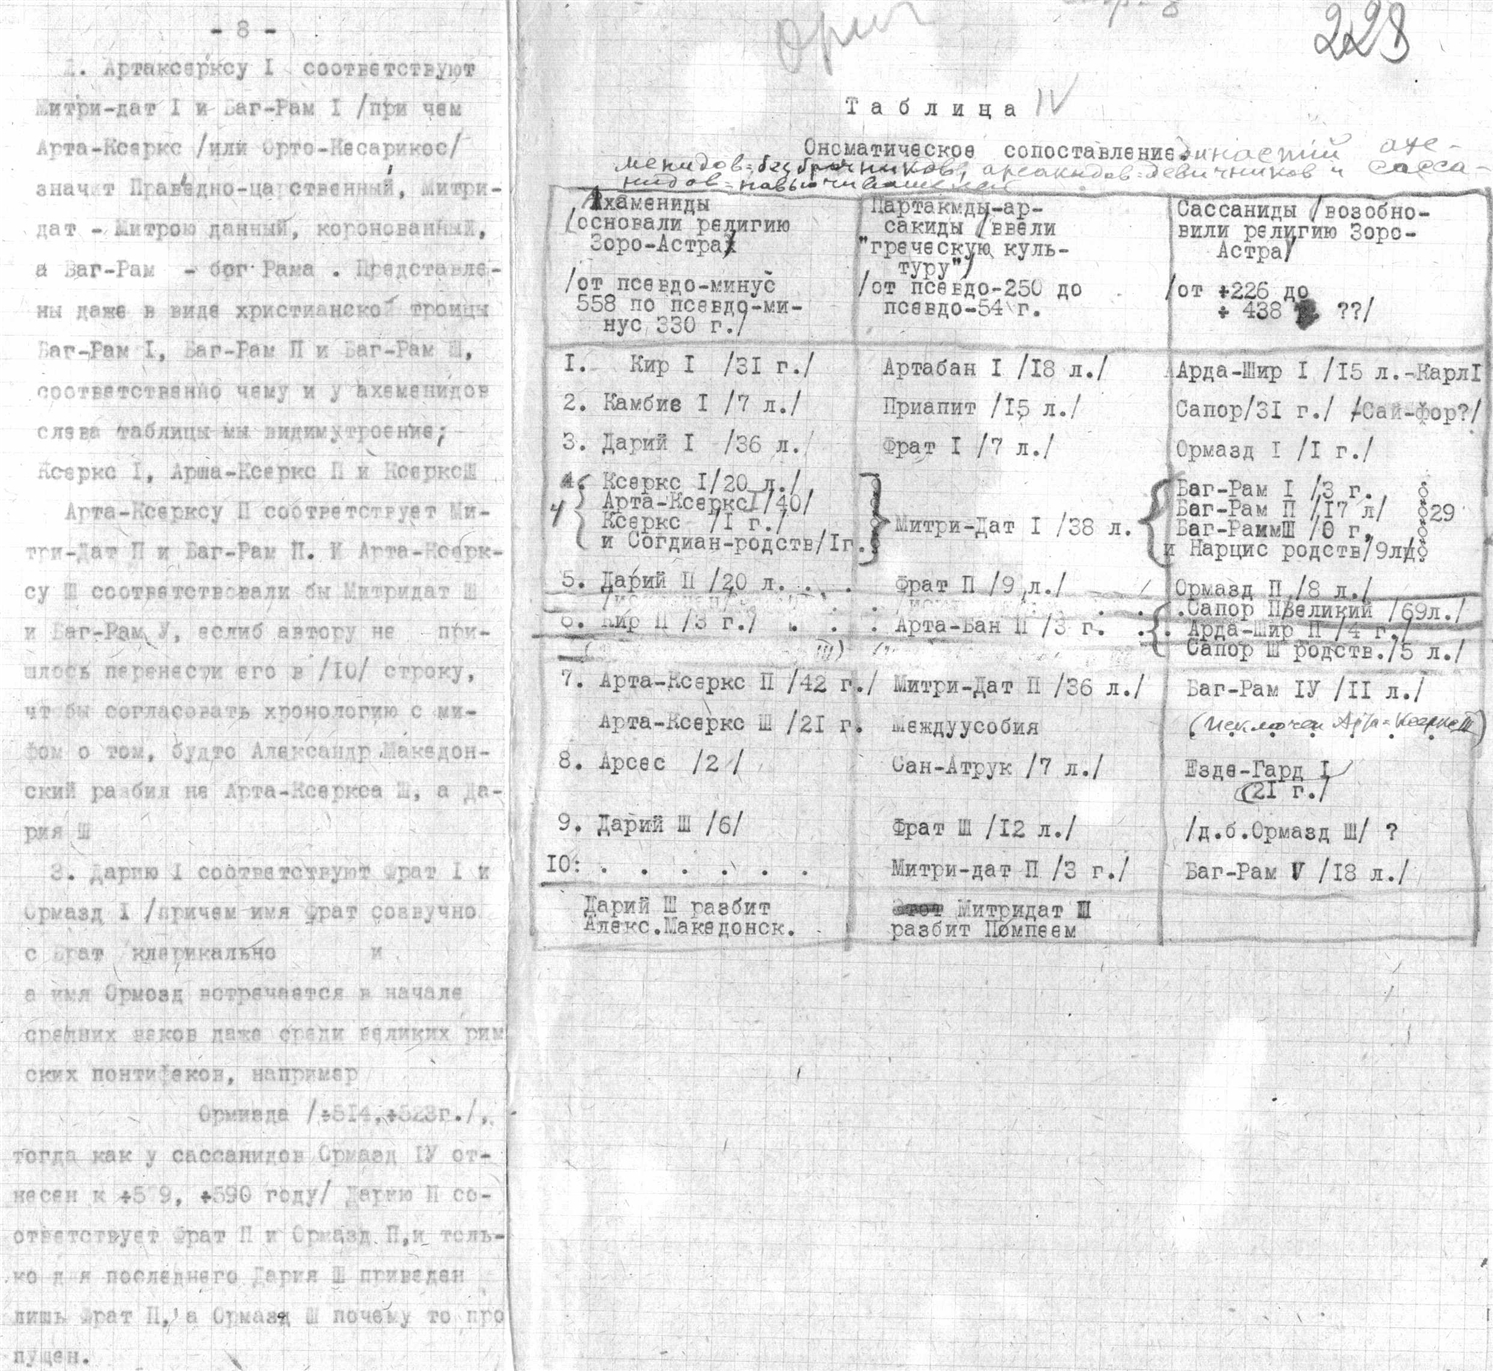 - 8 -
1. Артаксерксу I соответствуют
Митри-дат I и Баг-Рам I /при чем
Арта-Ксеркс /или Орто-Кесарикос/
значит Праведно-царственный, Митри-
дат - Митрою данный, коронованный,
а Баг-Рам - бог Рама . Представле-
ны даже в виде христианской троицы
Баг-Рам I, Баг-Рам П и Баг-Рам Ш,
соответственно чему и у ахеменидов
слева таблицы мы видим утроение;
Ксеркс I, Арша-Ксеркс П и Ксеркс Ш
Арта-Ксерксу П соответствует Ми-
три-Дат П и Баг-Рам П. И Арта-Ксерк-
су Ш соответствовали бы Митридат Ш
и Баг-Рам У, еслиб автору не при-
шлось перенести его в /IO/ строку,
чт бы согласовать хронологию с ми-
фом о том, будто Александр Македон-
ский разбил не Арта-Ксеркса Ш, а Да-
рия Ш
3. Дарию I соответствуют Фрат I и
Ормазд I /причем имя Фрат созвучно
с Брат клерикально и
а имя Ормозд встречается в начале
средних веков даже среди великих рим
ских понтифеков, например
Ормизда /+514,+523г./,
тогда как у сассанидов Ормазд IУ от-
несен к +5 9, +590 году/ Дарию П со-
ответствует Фрат П и Ормазд П,и толь-
ко д я последнего Дария Ш приведен
лишь Фрат П, а Ормазд Ш почему то про
пущен.
228
Таблица IV
Ономатическое сопоставление династий ахе-
менидов=безбрачников, арсакидов=девичников и сасса-
нидов=
Ахамениды
/основали религию
Зоро-Астра/
/от псевдо-минус
558 по псевдо-ми-
нус 330 г./
Партакмды-ар-
сакиды /ввели
"греческую куль-
туру"/
/от псевдо-250 до
псевдо-54 г.
Сассаниды /возобно-
вили религию Зоро-
Астра/
/от +226 до
+ 438 ??/
I. Кир I /31 г./ Артабан I /18 л./ Арда-Шир I /I5 л.-КарлI
2. Камбис I /7 л./ Приапит /I5 л./ Сапор/31 г./ /-Сай-фор?/
3. Дарий I /36 л./ Фрат I /7 л./ Ормазд I /I г./
4. Ксеркс I/20 л./
Арта-КсерксI/40/
Ксеркс /I г./
и Согдиан-родств/Iг.
Митри-Дат I /38 л.
Баг-Рам I /3 г.
Баг-Рам П /I7 л/ 29
Баг-РаммШ /0 г,
и Нарцис родств/9лд
5. Дарий П /20 л. . . . Фрат П /9 л./ Ормазд П /8 л./
.Сапор ПВеликий /69л./
6. Кир П /3 г./ . . . Арта-Бан П /3 г. . . Арда-Шир П /4 г./
Сапор Ш родств./5 л./
7. Арта-Ксеркс П /42 г./ Митри-Дат П /36 л./ Баг-Рам IУ /II л./
Арта-Ксеркс Ш /21 г. Междуусобия (исключен Арта=КсерксШ)
8. Арсес /2 / Сан-Атрук /7 л./ Езде-Гард I
(21 г./
9. Дарий Ш /6/ Фрат Ш /I2 л./ /д.б.Ормазд Ш/ ?
IO: . . . . . . Митри-дат П /3 г./ Баг-Рам V /I8 л./
Дарий Ш разбит
Алекс.Македонск.
Митридат Ш
разбит Помпеем